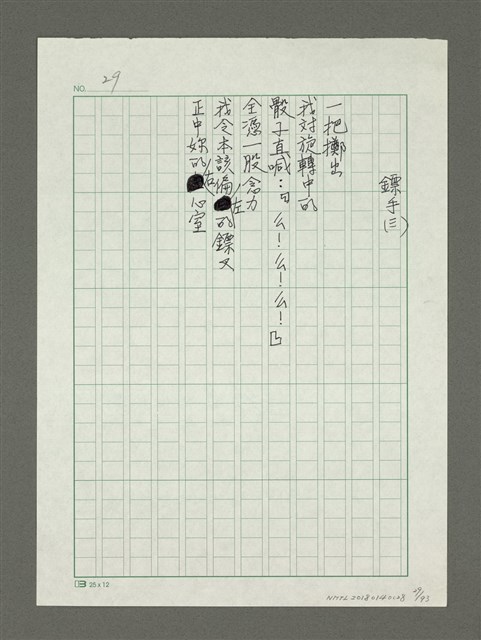 NO. 29
鏢手(三)
一把擲出
我对旋轉中的
骰子直喊:「么!么!么!」
全憑一股念力
我令本該偏左的鏢又
正中妳的右心室
25 x 12
NMTL20180140028
29/93